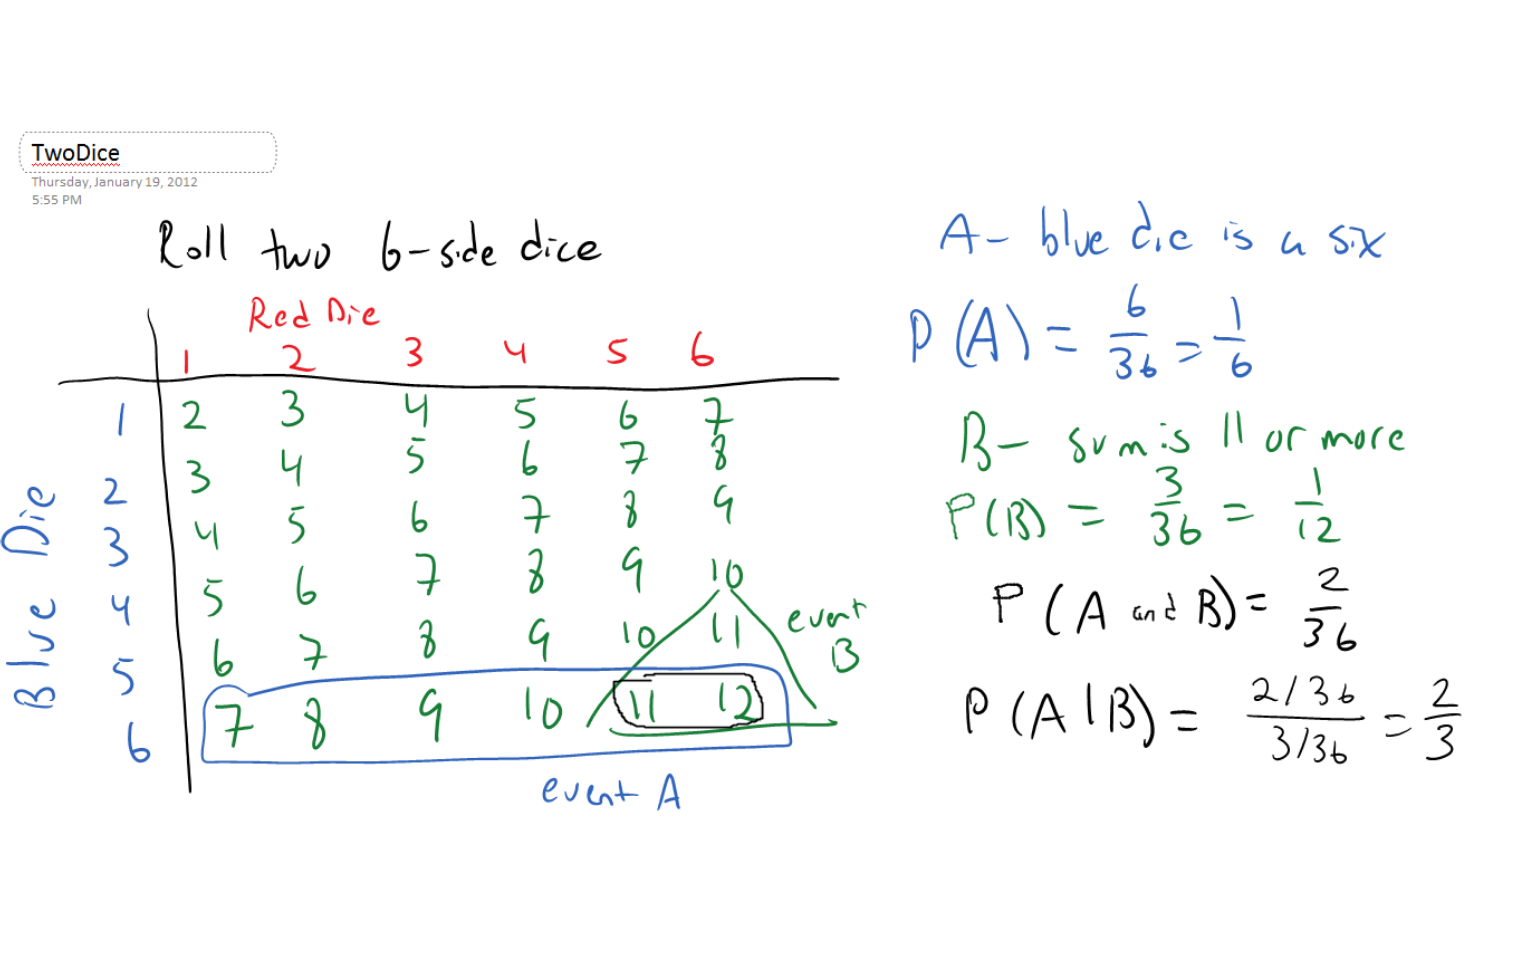 TwoDice
Thursday, January 19, 2012
5:55 PM
Roll two 6-side dice
Red Die
1 2 3 4 5 6
Blue Die
1 2 3 4 5 6 7
2 3 4 5 6 7 8
3 4 5 6 7 8 9
4 5 6 7 8 9 10
5 6 7 8 9 10 11
6 7 8 9 10 11 12
event B
event A
A - blue die is a six
P(A) = 6/36 = 1/6
B - sum is 11 or more
P(B) = 3/36 = 1/12
P(A and B) = 2/36
P(A|B) = 2/36 / 3/36 = 2/3